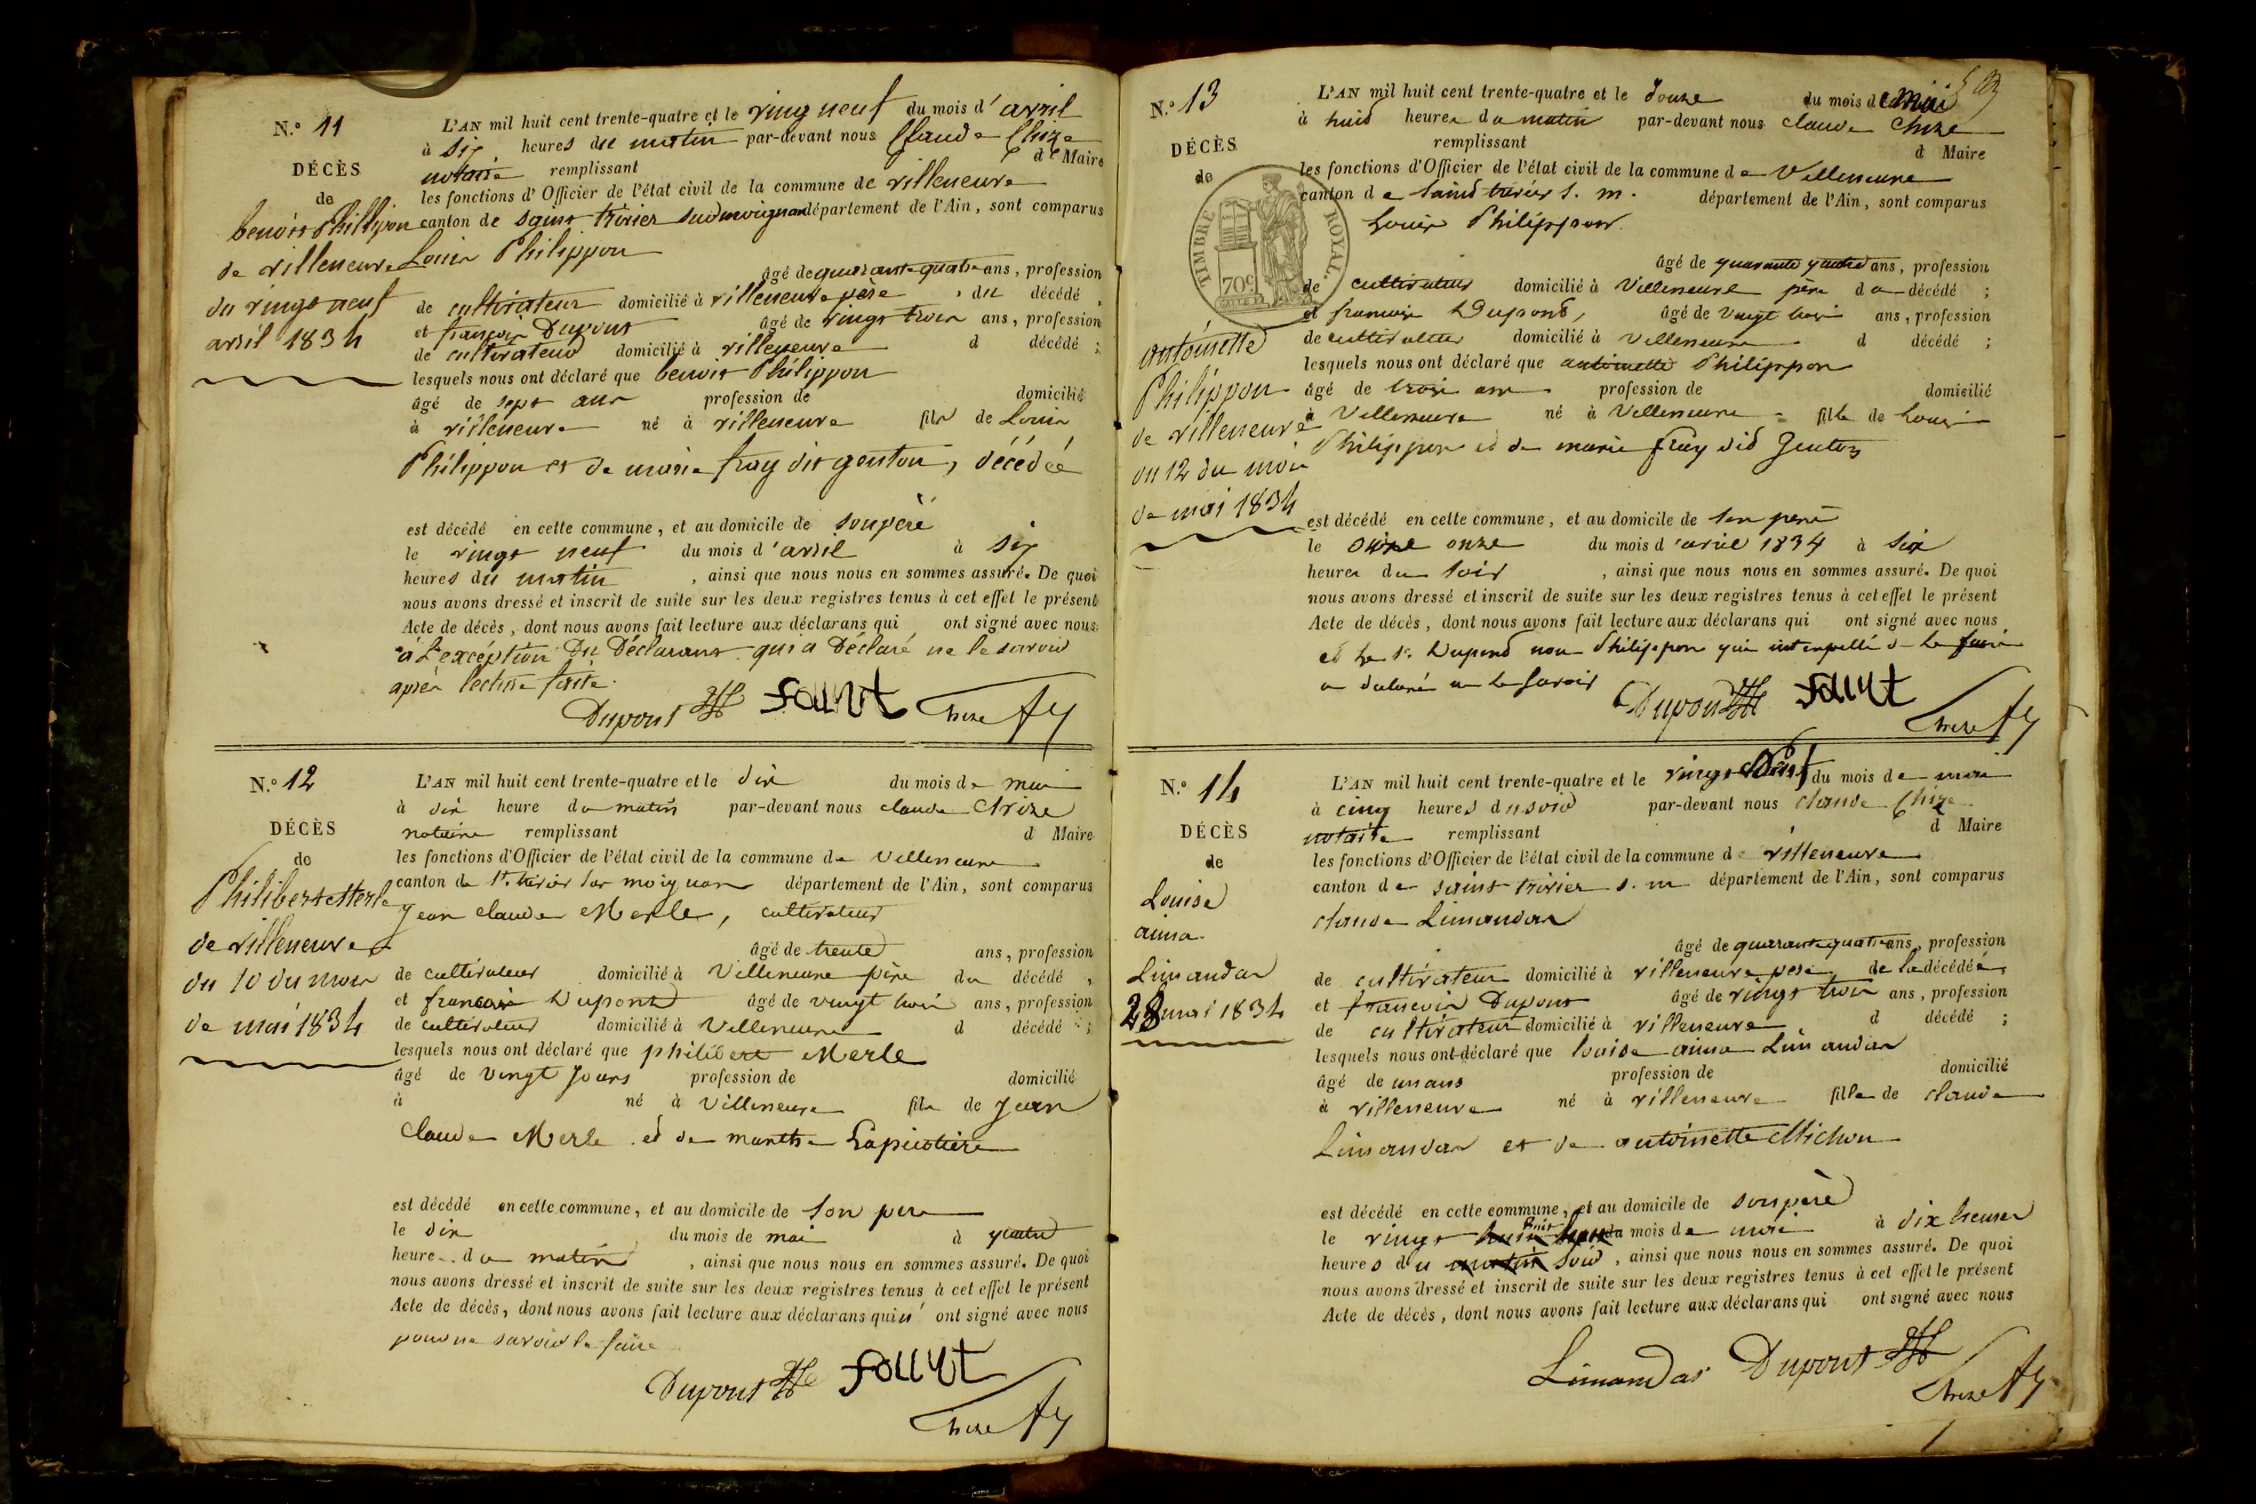 N.º 11
DÉCÈS
de
benoit Philippon
de villeneuve
du vingt neuf
avril 1834
L'AN mil huit cent trente-quatre et le vingt neuf du mois d'avril
à six heures du matin par-devant nous Claude Chize
notaire remplissant d Maire
les fonctions d'Officier de l'état civil de la commune de villeneuve
canton de saint trivier sur moignan département de l'Ain, sont comparus
Louis Philippon
âgé de quarante quatre ans, profession
de cultivateur domicilié à villeneuve père du décédé,
et françois Dupont âgé de vingt trois ans, profession
de cultivateur domicilié à villeneuve d décédé;
lesquels nous ont déclaré que benoit Philippon
âgé de sept ans profession de domicilié
à villeneuve né à villeneuve fils de Louis
Philippon et de marie fray dit genton, décédée
est décédé en cette commune, et au domicile de son père
le vingt neuf du mois d'avril à six
heures du matin, ainsi que nous nous en sommes assuré. De quoi
nous avons dressé et inscrit de suite sur les deux registres tenus à cet effet le présent
Acte de décès, dont nous avons fait lecture aux déclarans qui ont signé avec nous
à L'exception Du Déclarant qui a Déclaré ne le savoir
après lecture faite.
Dupont Chize
N.º 12
DÉCÈS
de
Philibert Merle
de villeneuve
du 10 du mois
de mai 1834
L'AN mil huit cent trente-quatre et le dix du mois de mai
à dix heure du matin par-devant nous claude Chize
notaire remplissant d Maire
les fonctions d'Officier de l'état civil de la commune de Villeneuve
canton de st. trivier sur moignan département de l'Ain, sont comparus
Jean claude Merle, cultivateur
âgé de trente ans, profession
de cultivateur domicilié à Villeneuve père du décédé,
et francois Dupont âgé de vingt trois ans, profession
de cultivateur domicilié à Villeneuve d décédé;
lesquels nous ont déclaré que philibert Merle
âgé de vingt jours profession de domicilié
à né à Villeneuve fils de Jean
Claude Merle et de marthe Lapicotière
est décédé en cette commune, et au domicile de son pere
le dix du mois de mai à quatre
heure du matin, ainsi que nous nous en sommes assuré. De quoi
nous avons dressé et inscrit de suite sur les deux registres tenus à cet effet le présent
Acte de décès, dont nous avons fait lecture aux déclarans qui n' ont signé avec nous
pour ne savoir le faire
Dupont Chize
N.º 13
DÉCÈS
de
TIMBRE ROYAL.
70c
antoinette
Philippon
de villeneuve
du 12 du mois
de mai 1834
L'AN mil huit cent trente-quatre et le douze du mois de mai
à huit heures du matin par-devant nous claude Chize
remplissant d Maire
les fonctions d'Officier de l'état civil de la commune de Villeneuve
canton de saint trivier s. m. département de l'Ain, sont comparus
Louis Philippon
âgé de quarante quatre ans, profession
de cultivateur domicilié à Villeneuve père de décédé;
et francois Dupont, âgé de vingt trois ans, profession
de cultivateur domicilié à Villeneuve d décédé;
lesquels nous ont déclaré que antoinette Philippon
âgé de trois ans profession de domicilié
à Villeneuve né à Villeneuve fille de Louis
Philippon et de marie fray dit Genton
est décédé en cette commune, et au domicile de son pere
le onze du mois d'avril 1834 à six
heures du soir, ainsi que nous nous en sommes assuré. De quoi
nous avons dressé et inscrit de suite sur les deux registres tenus à cet effet le présent
Acte de décès, dont nous avons fait lecture aux déclarans qui ont signé avec nous
et le sr. Dupont non Philippon qui interpellé de le faire
a declaré ne le savoir
Dupont Chize
N.º 14
DÉCÈS
de
Louise
aima
Limandas
28 mai 1834
L'AN mil huit cent trente-quatre et le vingt neuf du mois de mai
à cinq heures du soir par-devant nous claude Chize
notaire remplissant d Maire
les fonctions d'Officier de l'état civil de la commune de villeneuve
canton de saint trivier s. m département de l'Ain, sont comparus
claude Limandas
âgé de quarante quatre ans, profession
de cultivateur domicilié à villeneuve pere de la décédée,
et francois Dupont âgé de vingt trois ans, profession
de cultivateur domicilié à villeneuve d décédé;
lesquels nous ont déclaré que louise aima Limandas
âgé de un ans profession de domicilié
à villeneuve né à villeneuve fille de claude
Limandas et de antoinette Michon
est décédé en cette commune, et au domicile de son père
le vingt huit du mois de mai à dix heures
heures du matin soir, ainsi que nous nous en sommes assuré. De quoi
nous avons dressé et inscrit de suite sur les deux registres tenus à cet effet le présent
Acte de décès, dont nous avons fait lecture aux déclarans qui ont signé avec nous
Limandas Dupont
Chize